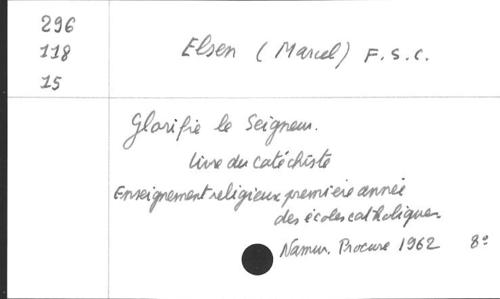 296
118
15
Elsen (Marcel) F.S.C.
Glorifie le Seigneur.
livre du catéchiste
Enseignement religieux première année
des écoles catholiques
Namur. Procure 1962 8°